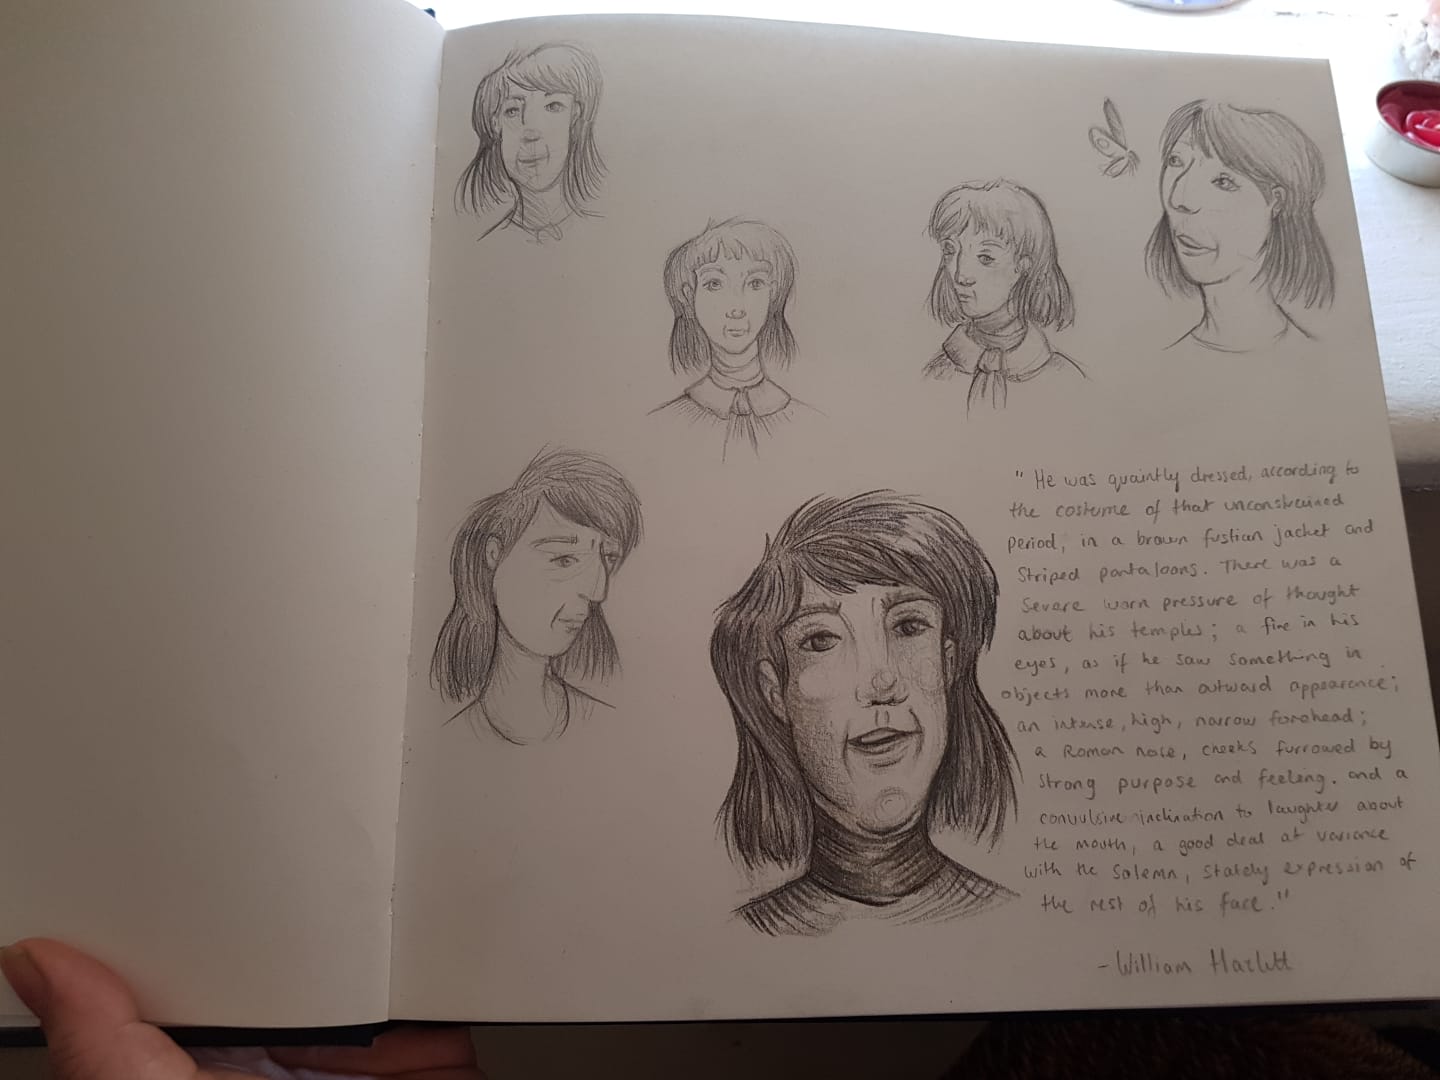 " He was quaintly dressed, according to
the costume of that unconstrained
period, in a brown fustian jacket and
striped pantaloons. There was a
severe worn pressure of thought
about his temples; a fire in his
eyes, as if he saw something in
objects more than outward appearance;
an intense, high, narrow forehead;
a Roman nose, cheeks furrowed by
strong purpose and feeling. and a
convulsive inclination to laughter about
the mouth, a good deal at variance
with the solemn, stately expression of
the rest of his face."
- William Hazlitt